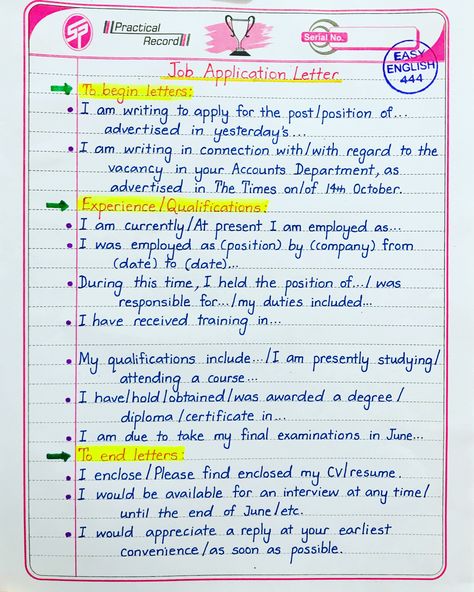 SP
Practical
Record
Serial No.
EASY
ENGLISH
444
Job Application Letter
To begin letters:
I am writing to apply for the post/position of...
advertised in yesterday's...
I am writing in connection with/with regard to the
vacancy in your Accounts Department, as
advertised in The Times on/of 14th October.
Experience/Qualifications:
I am currently/At present I am employed as...
I was employed as (position) by (company) from
(date) to (date)...
During this time, I held the position of.../ was
responsible for.../my duties included...
I have received training in...
My qualifications include.../I am presently studying/
attending a course...
I have/hold/obtained/was awarded a degree/
diploma/certificate in...
I am due to take my final examinations in June...
To end letters:
I enclose/Please find enclosed my CV/resume.
I would be available for an interview at any time/
until the end of June/etc.
I would appreciate a reply at your earliest
convenience/as soon as possible.